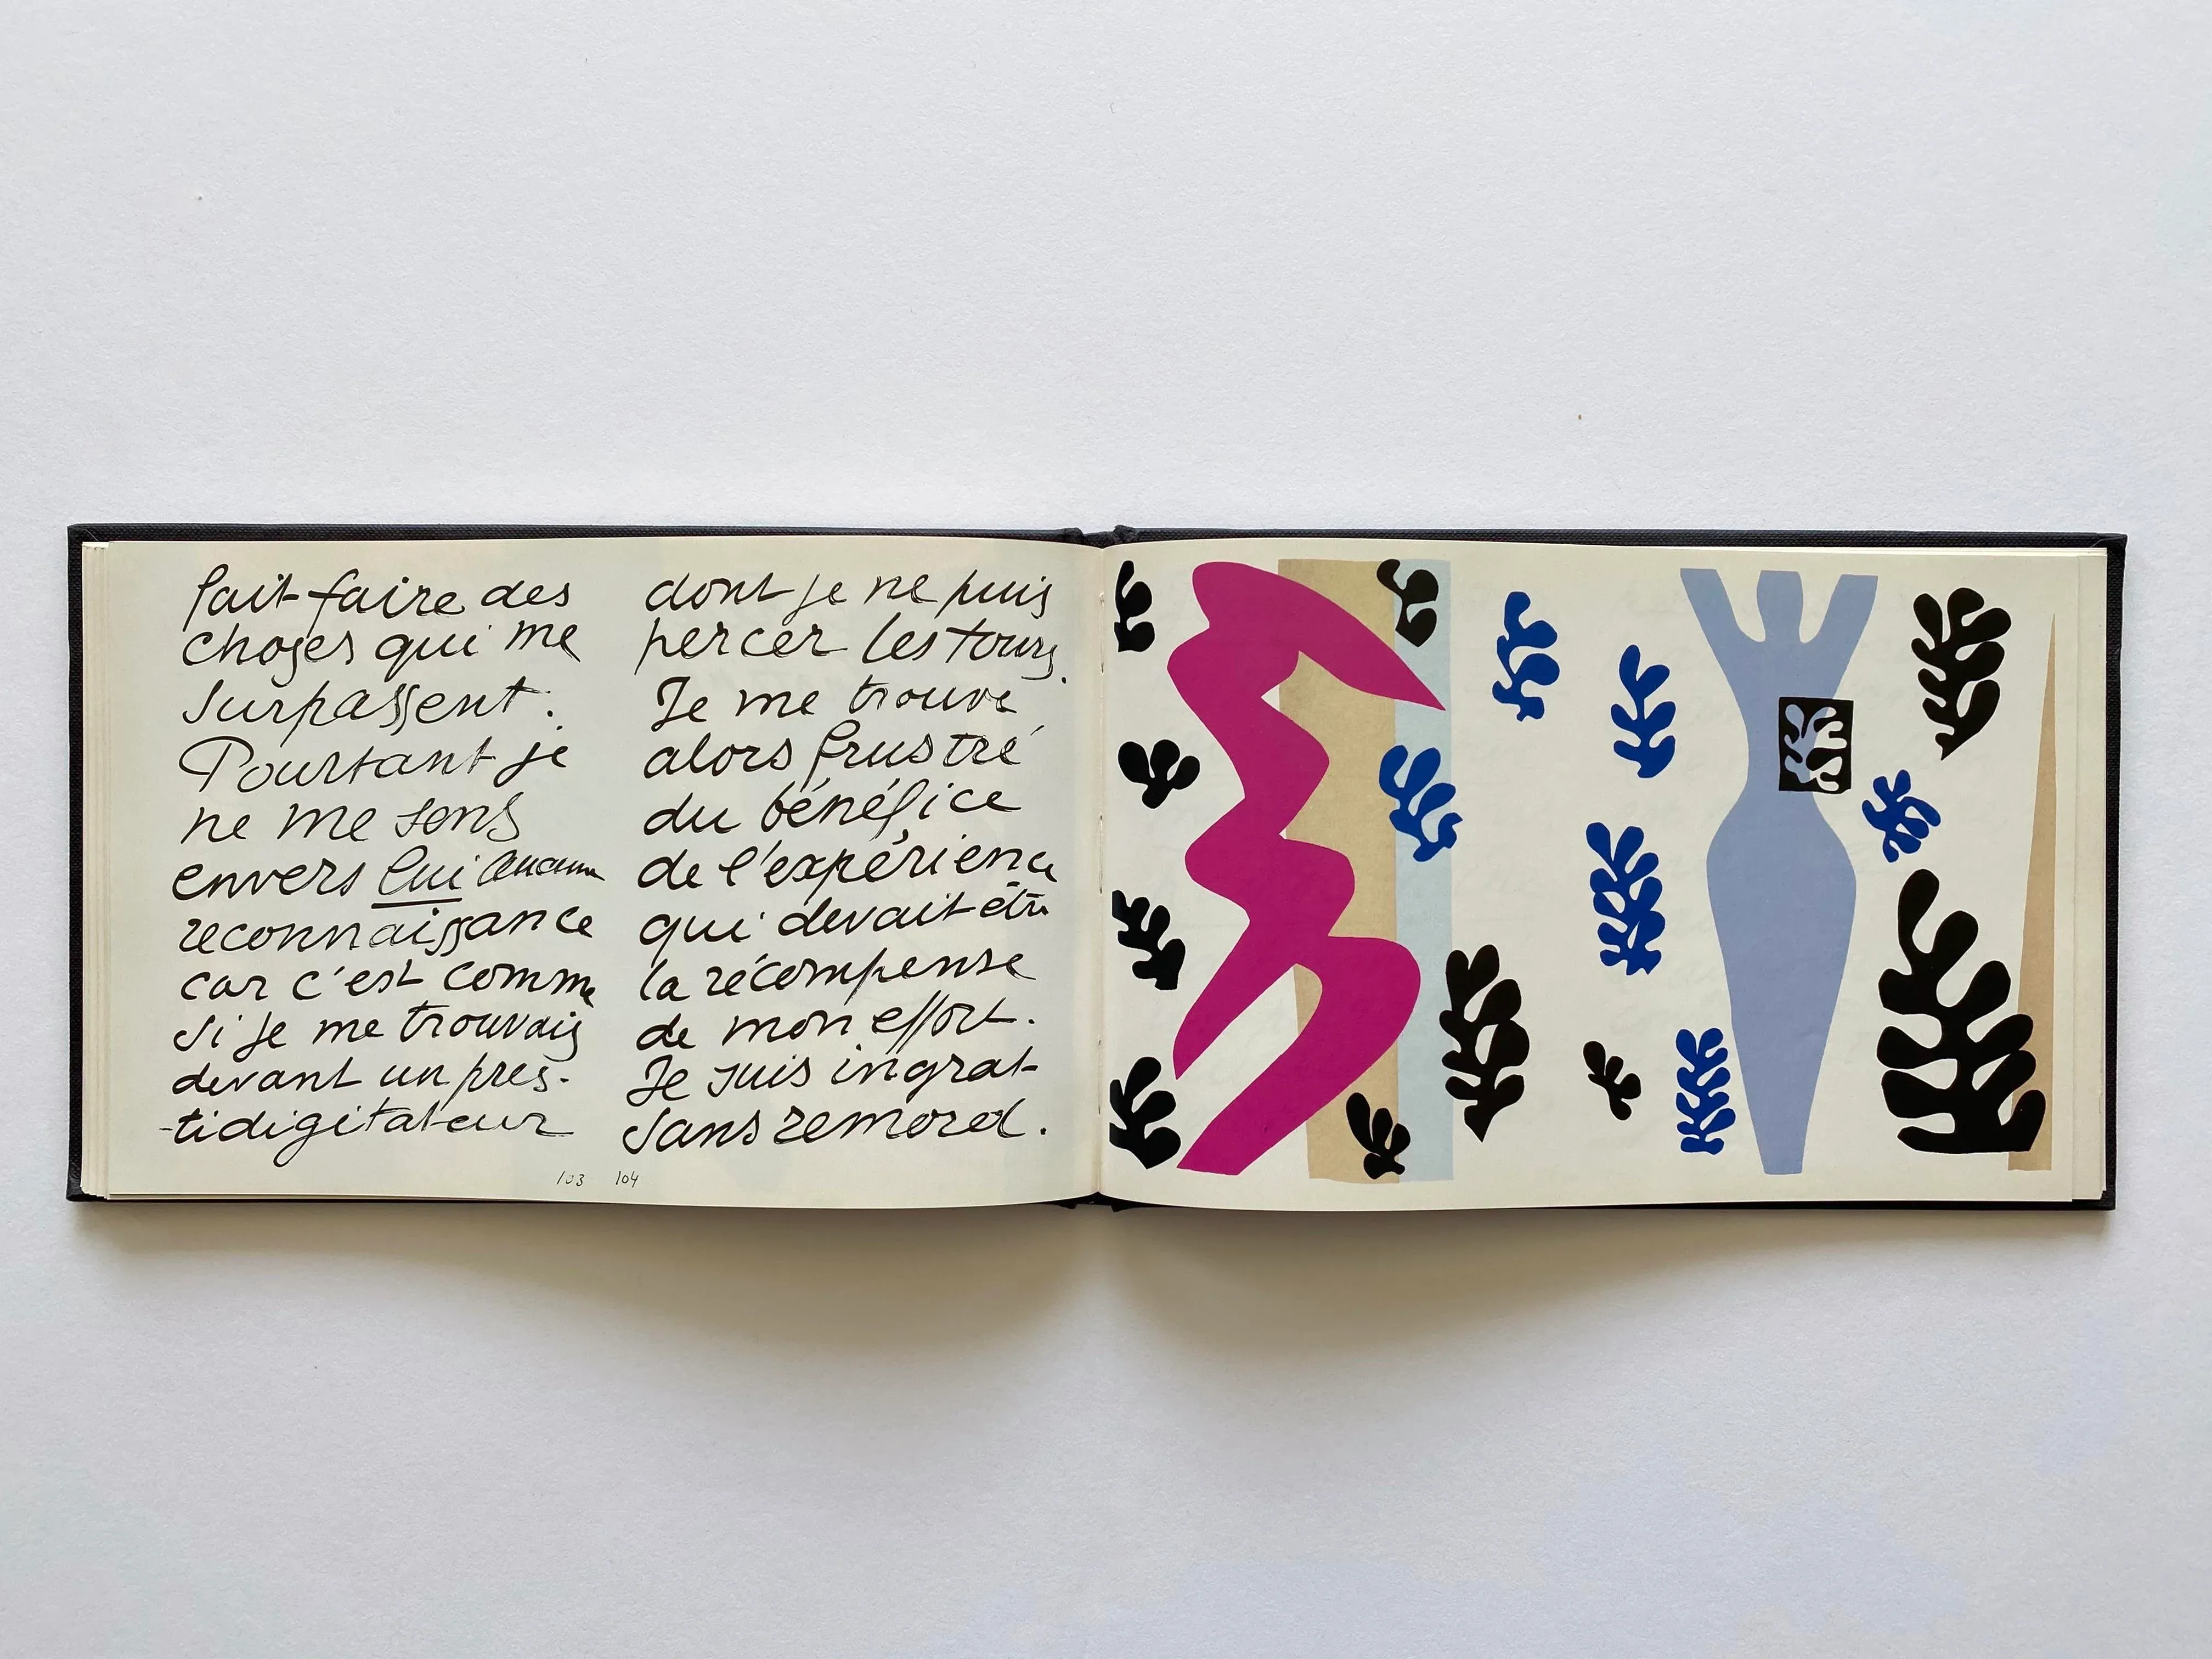 fait faire des
choses qui me
surpassent.
Pourtant je
ne me sens
envers lui aucune
reconnaissance
car c'est comme
si je me trouvais
devant un pres-
tidigitateur
103
dont je ne puis
percer les tours.
Je me trouve
alors frustré
du bénéfice
de l'expérience
qui devait être
la récompense
de mon effort.
Je suis ingrat
sans remord.
104